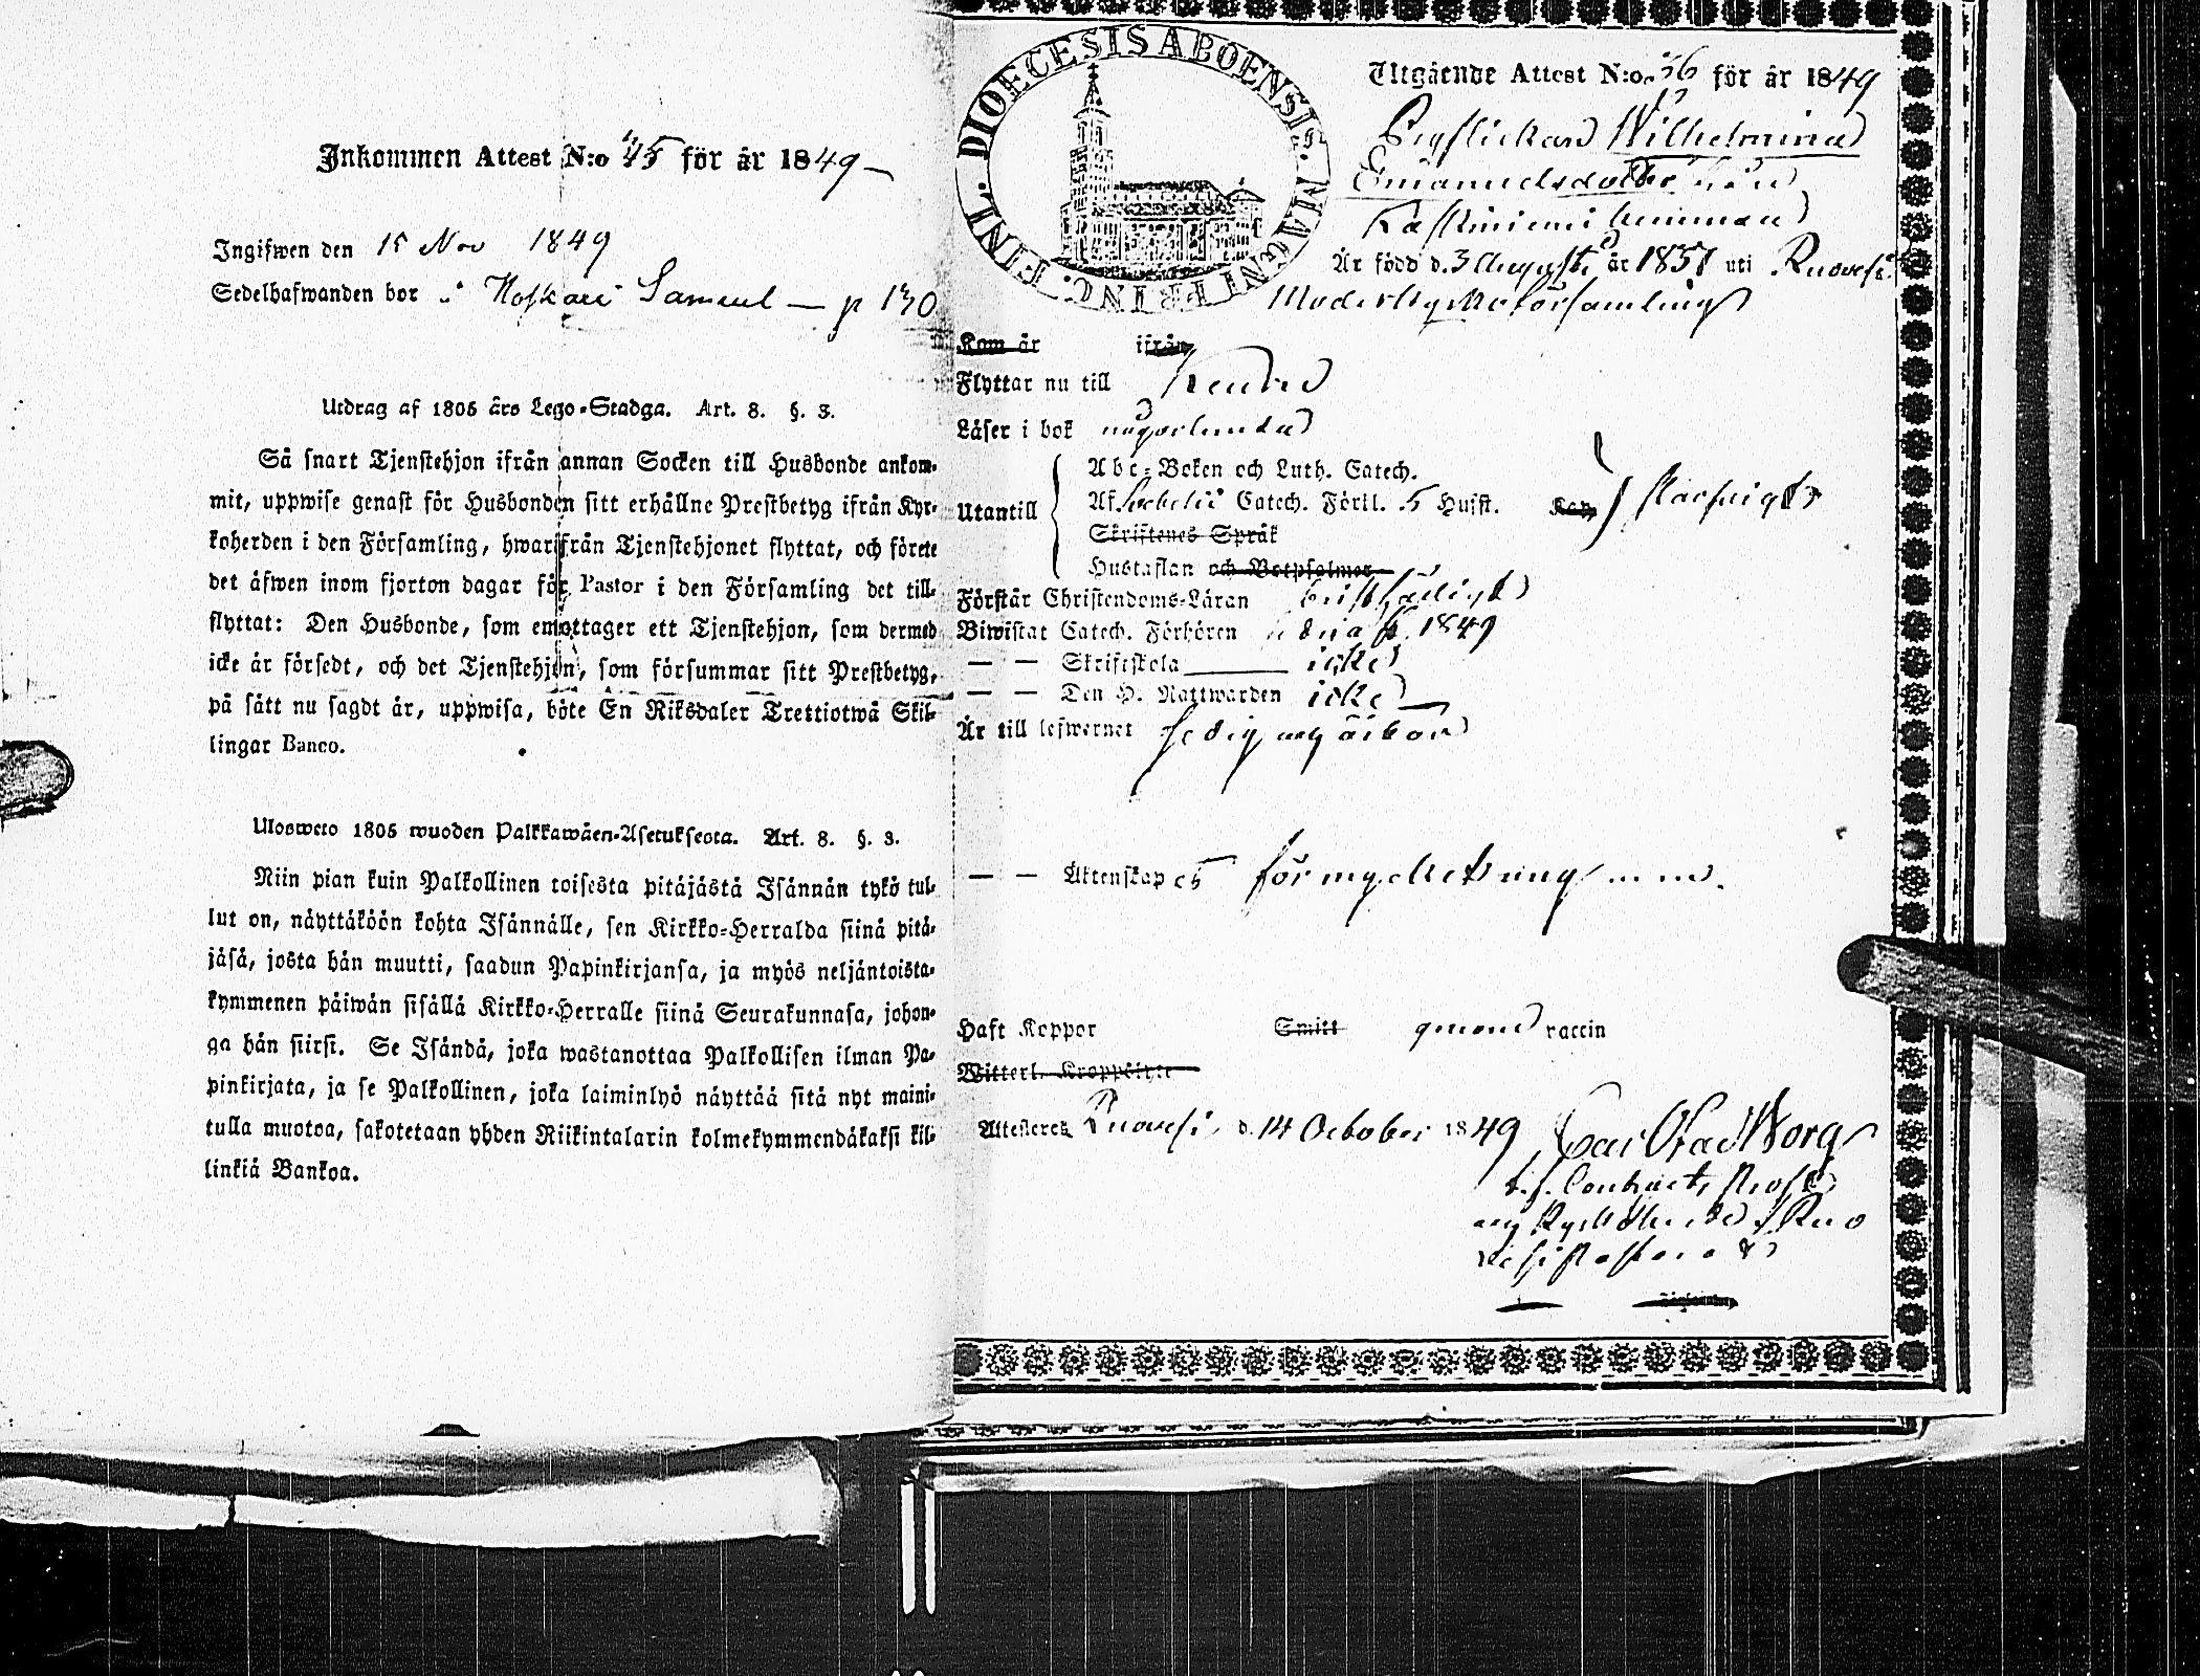 Inkommen Attest N:o 45 för år 1849
Ingifwen den 15 Nov 1849
Sedelhafwanden bor i Koskari Samuel — p 130
Utdrag af 1805 års Lego-Stadga. Art. 8. §. 3.
Så snart Tjenstehjon ifrån annan Socken till Husbonde ankom-
mit, uppwise genast för Husbonden sitt erhållne Prestbetyg ifrån Kyr-
koherden i den Församling, hwarifrån Tjenstehjonet flyttat, och förete
det äfwen inom fjorton dagar för Pastor i den Församling det till-
flyttat: Den Husbonde, som emottager ett Tjenstehjon, som dermed
icke är försedt, och det Tjenstehjon, som försummar sitt Prestbetyg,
på sätt nu sagdt är, uppwisa, böte En Riksdaler Trettiotwå Skil-
lingar Banco.
Uloswето 1805 wuoden Palkkawäen-Asetuksesta. Art. 8. §. 3.
Niin pian kuin Palkollinen toisesta pitäjästä Isännän tykö tul-
lut on, näyttäköön kohta Isännälle, sen Kirkko-Herralda siinä pitä-
jäsä, josta hän muutti, saadun Papinkirjansa, ja myös neljäntoista-
kymmenen päiwän sisällä Kirkko-Herralle siinä Seurakunnasa, johon-
ga hän siirsi. Se Isändä, joka wastanottaa Palkollisen ilman Pa-
pinkirjata, ja se Palkollinen, joka laiminlyö näyttää sitä nyt maini-
tulla muotoa, sakotetaan yhden Riikintalarin kolmekymmendäkaksi kil-
linkiä Bankoa.
DIOECESIS ABOENSIS. MAGNI PRINC. FINL.
Utgående Attest N:o 56 för år 1849
Pigflickan Wilhelmina
Emanuelsdotter
Är född d. 3 Augusti år 1831 uti Ruovesi
Moderkyrkoförsamling
Kom år ifrån
Flyttar nu till Keuru
Läser i bok någorlunda
Utantill
Abc-Boken och Luth. Catech.
Af Swebelii Catech. Förkl. 5 Hufst. Kap.
Skriftenes Språk
Hustaflan och Botpsalmer
Förstår Christendoms-Läran bristfälligt
Biwistat Catech. Förhören 1849
— — Skriftskola icke
— — Den H. Nattwarden icke
Är till lefwernet sedig och ärbar
— — Äktenskap
Haft Koppor Smitt genom vaccin
Witterl. Kroppslyte
Attesteras Ruovesi, d. 14 October 1849
t.f. Contracts Prost